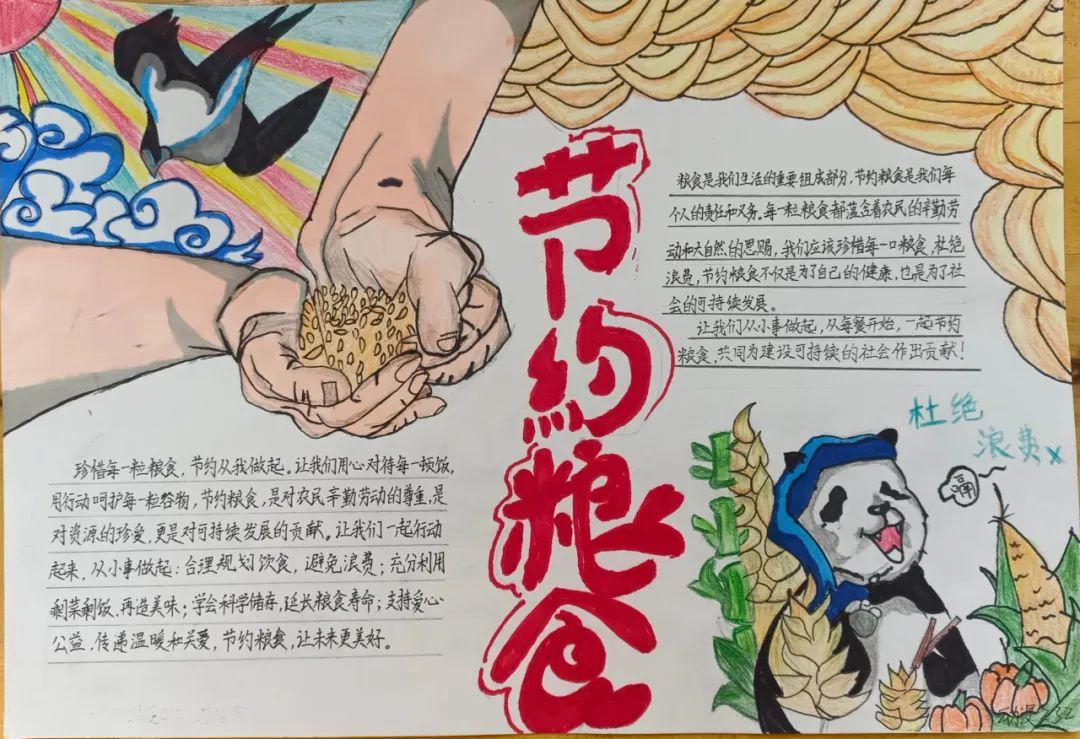 节约粮食
粮食是我们生活的重要组成部分，节约粮食是我们每
个人的责任和义务。每一粒粮食都蕴含着农民的辛勤劳
动和大自然的恩赐，我们应该珍惜每一口粮食，杜绝
浪费，节约粮食不仅是为了自己的健康，也是为了社
会的可持续发展。
让我们从小事做起，从每餐开始，一起节约
粮食，共同为建设可持续的社会作出贡献！
杜绝
浪费
嗝
珍惜每一粒粮食，节约从我做起。让我们用心对待每一顿饭，
用行动呵护每一粒谷物，节约粮食，是对农民辛勤劳动的尊重，是
对资源的珍爱，更是对可持续发展的贡献。让我们一起行动
起来，从小事做起：合理规划饮食，避免浪费；充分利用
剩菜剩饭，再造美味；学会科学储存，延长粮食寿命；支持爱心
公益，传递温暖和关爱，节约粮食，让未来更美好。